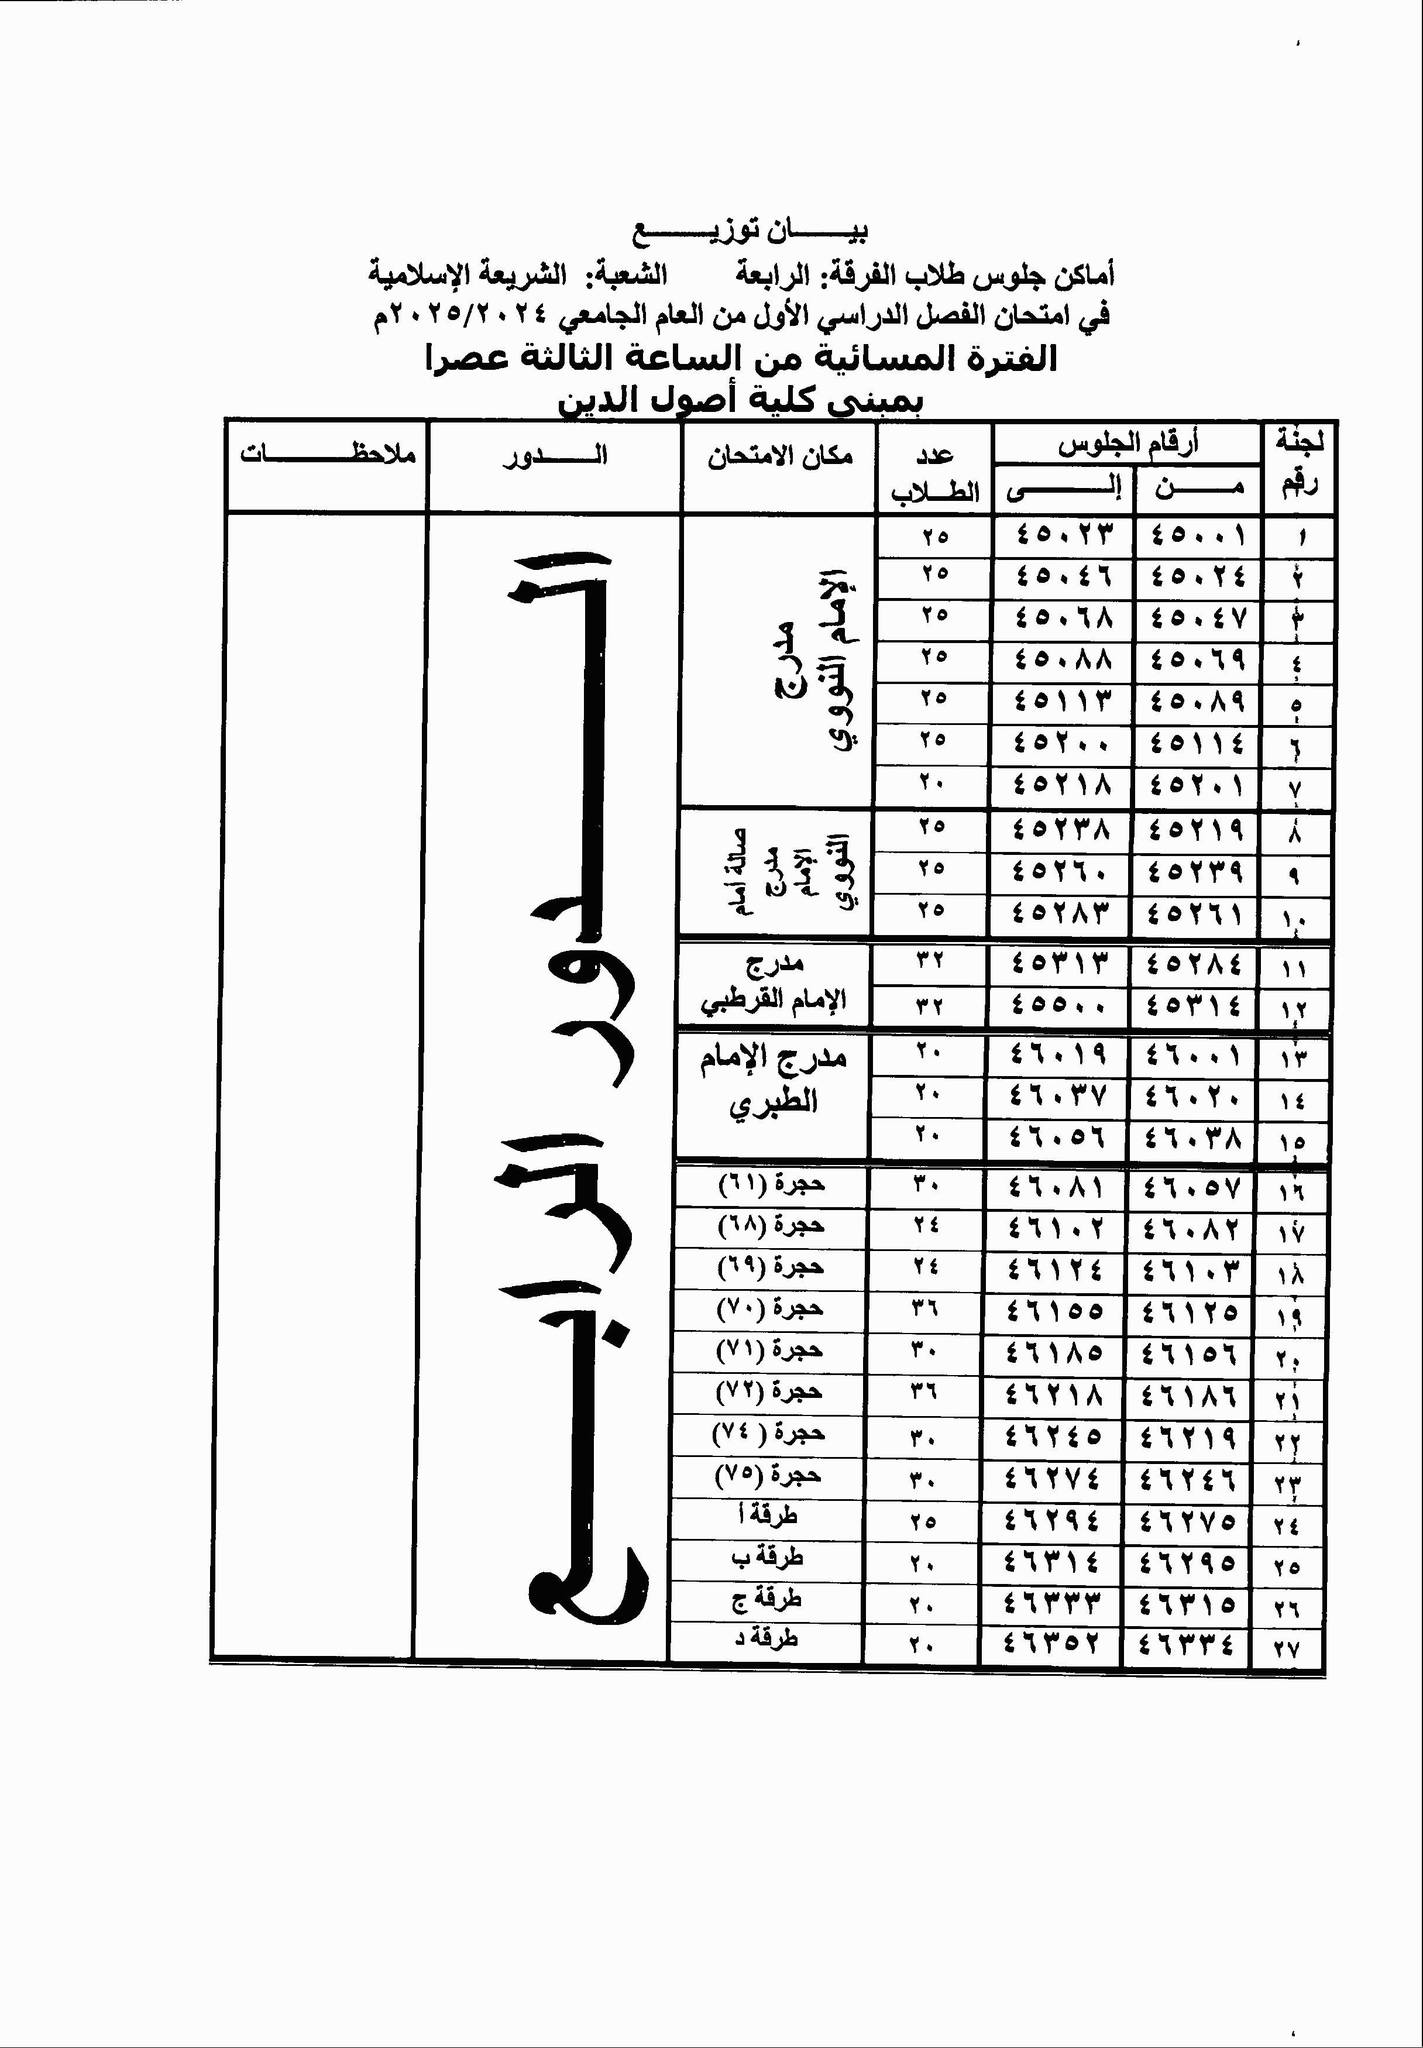 بيـــــــان توزيـــــــع
أماكن جلوس طلاب الفرقة: الرابعة الشعبة: الشريعة الإسلامية
في امتحان الفصل الدراسي الأول من العام الجامعي ٢٠٢٥/٢٠٢٤م
الفترة المسائية من الساعة الثالثة عصرا
بمبنى كلية أصول الدين
لجنة رقم أرقام الجلوس عدد الطــلاب مكان الامتحان الـــــدور ملاحظـــــــات
مـــن إلــــى
١ ٤٥٠٠١ ٤٥٠٢٣ ٢٥ مدرج الإمام النووي الــــدور الرابــــع
٢ ٤٥٠٢٤ ٤٥٠٤٦ ٢٥
٣ ٤٥٠٤٧ ٤٥٠٦٨ ٢٥
٤ ٤٥٠٦٩ ٤٥٠٨٨ ٢٥
٥ ٤٥٠٨٩ ٤٥١١٣ ٢٥
٦ ٤٥١١٤ ٤٥٢٠٠ ٢٥
٧ ٤٥٢٠١ ٤٥٢١٨ ٢٠
٨ ٤٥٢١٩ ٤٥٢٣٨ ٢٥ صالة أمام مدرج الإمام النووي
٩ ٤٥٢٣٩ ٤٥٢٦٠ ٢٥
١٠ ٤٥٢٦١ ٤٥٢٨٣ ٢٥
١١ ٤٥٢٨٤ ٤٥٣١٣ ٣٢ مدرج
١٢ ٤٥٣١٤ ٤٥٥٠٠ ٣٢ الإمام القرطبي
١٣ ٤٦٠٠١ ٤٦٠١٩ ٢٠ مدرج الإمام
١٤ ٤٦٠٢٠ ٤٦٠٣٧ ٢٠ الطبري
١٥ ٤٦٠٣٨ ٤٦٠٥٦ ٢٠
١٦ ٤٦٠٥٧ ٤٦٠٨١ ٣٠ حجرة (٦١)
١٧ ٤٦٠٨٢ ٤٦١٠٢ ٢٤ حجرة (٦٨)
١٨ ٤٦١٠٣ ٤٦١٢٤ ٢٤ حجرة (٦٩)
١٩ ٤٦١٢٥ ٤٦١٥٥ ٣٦ حجرة (٧٠)
٢٠ ٤٦١٥٦ ٤٦١٨٥ ٣٠ حجرة (٧١)
٢١ ٤٦١٨٦ ٤٦٢١٨ ٣٦ حجرة (٧٢)
٢٢ ٤٦٢١٩ ٤٦٢٤٥ ٣٠ حجرة (٧٤ )
٢٣ ٤٦٢٤٦ ٤٦٢٧٤ ٣٠ حجرة (٧٥)
٢٤ ٤٦٢٧٥ ٤٦٢٩٤ ٢٥ طرقة أ
٢٥ ٤٦٢٩٥ ٤٦٣١٤ ٢٠ طرقة ب
٢٦ ٤٦٣١٥ ٤٦٣٣٣ ٢٠ طرقة ج
٢٧ ٤٦٣٣٤ ٤٦٣٥٢ ٢٠ طرقة د